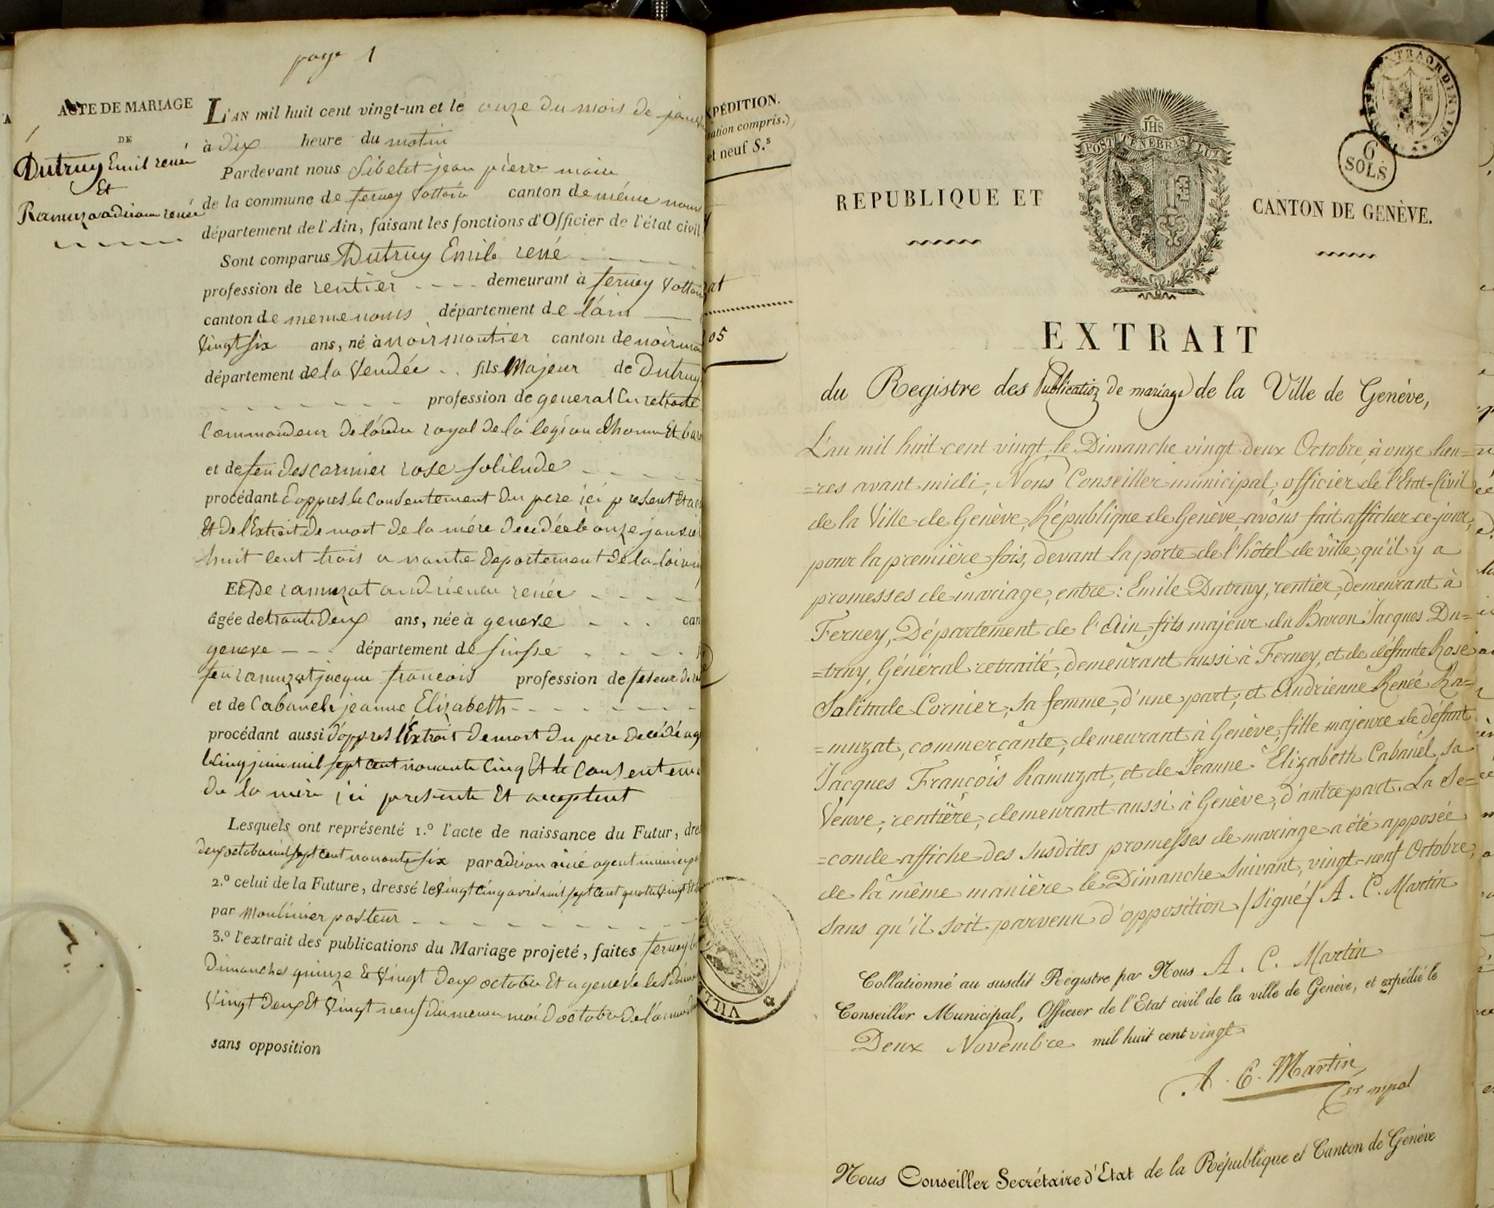 page 1
ACTE DE MARIAGE
DE
Dutruy Emil renée
Et
Ramuza adriene renée
L'AN mil huit cent vingt-un et le onze du mois de janv
à dix heure du matin
Pardevant nous Sibelet jean pierre maire
de la commune de ferney Voltaire canton de même nom
département de l'Ain, faisant les fonctions d'Officier de l'état civil
Sont comparus Dutruy Emile rené
profession de rentier demeurant à ferney Voltair
canton de meme noms département de lain
Vingt six ans, né à noirmoutier canton de noirmou
département de la Vendée fils Majeur de Dutruy
profession de general En retraite
Commandeur de lórdre royal de la légion dhonneur Et bar
et de feu descormier rose solitude
procédant d'appres le Consentement du pere ici present Et ac
Et de l'Extrait de mort de la mére decedée le onze janvier
huit cent trois a nante departement de la loire
Et De ramuzat andriene renée
âgée de trante deux ans, née à geneve can
geneve département de suisse
feu ramuzat jacque francois profession de feseur de
et de Cabanel jeanne Elizabeth
procédant aussi d'appres l'Extrait de mort du pere decédé a g
le Cinq juin mil sept cent nonante Cinq Et le Consentem
de la mére ici presente Et acceptent
Lesquels ont représenté 1.º l'acte de naissance du Futur, dre
deux octobre mil sept cent nonante six par adrion ainé agent municip
2.º celui de la Future, dressé le Vingt Cinq avril mil sept cent quatre Vingt
par moulinier pasteur
3.º l'extrait des publications du Mariage projeté, faites ferney le
dimanches quinze Et Vingt deux octobre Et a geneve les dima
Vingt deux Et Vingt neuf du meme moi d octobre de l'anné
sans opposition
XPÉDITION.
ation compris.)
et neuf S.s
at
05
VILL
TIMBRE EXTRAORDINAIRE
6
SOLS
JHS
POST TENEBRAS LUX
REPUBLIQUE ET CANTON DE GENÈVE.
EXTRAIT
du Registre des Publication de mariage de la Ville de Genève,
L'an mil huit cent vingt, le Dimanche vingt deux Octobre, à onze heu=
=res avant midi; Nous Conseiller municipal, officier de l'Etat-Civil
de la Ville de Genève, République de Genève, avons fait afficher ce jour,
pour la première fois, devant la porte de l'hôtel de ville, qu'il y a
promesses de mariage, entre: Emile Dutruy, rentier, demeurant à
Ferney, Département de l'Ain, fils majeur du Baron Jacques Du=
=truy, Général retraité, demeurant aussi à Ferney, et de défunte Rose
Solitude Cornier, sa femme, d'une part; et Andrienne Renée Ra=
=muzat, commerçante, demeurant à Genève, fille majeure de défunt
Jacques François Ramuzat, et de Jeanne Elizabeth Cabanel, sa
Veuve, rentière, demeurant aussi à Genève, d'autre part. La se=
=conde affiche des susdites promesses de mariage a été apposée
de la même manière le Dimanche suivant, vingt-neuf Octobre,
sans qu'il soit parvenu d'opposition (Signé) A. C. Martin
Collationné au susdit Registre par Nous A. C. Martin
Conseiller Municipal, Officier de l'Etat civil de la ville de Genève, et expédié le
Deux Novembre mil huit cent vingt
A. C. Martin
Cer mpal
Nous Conseiller Secrétaire d'Etat de la République et Canton de Genève